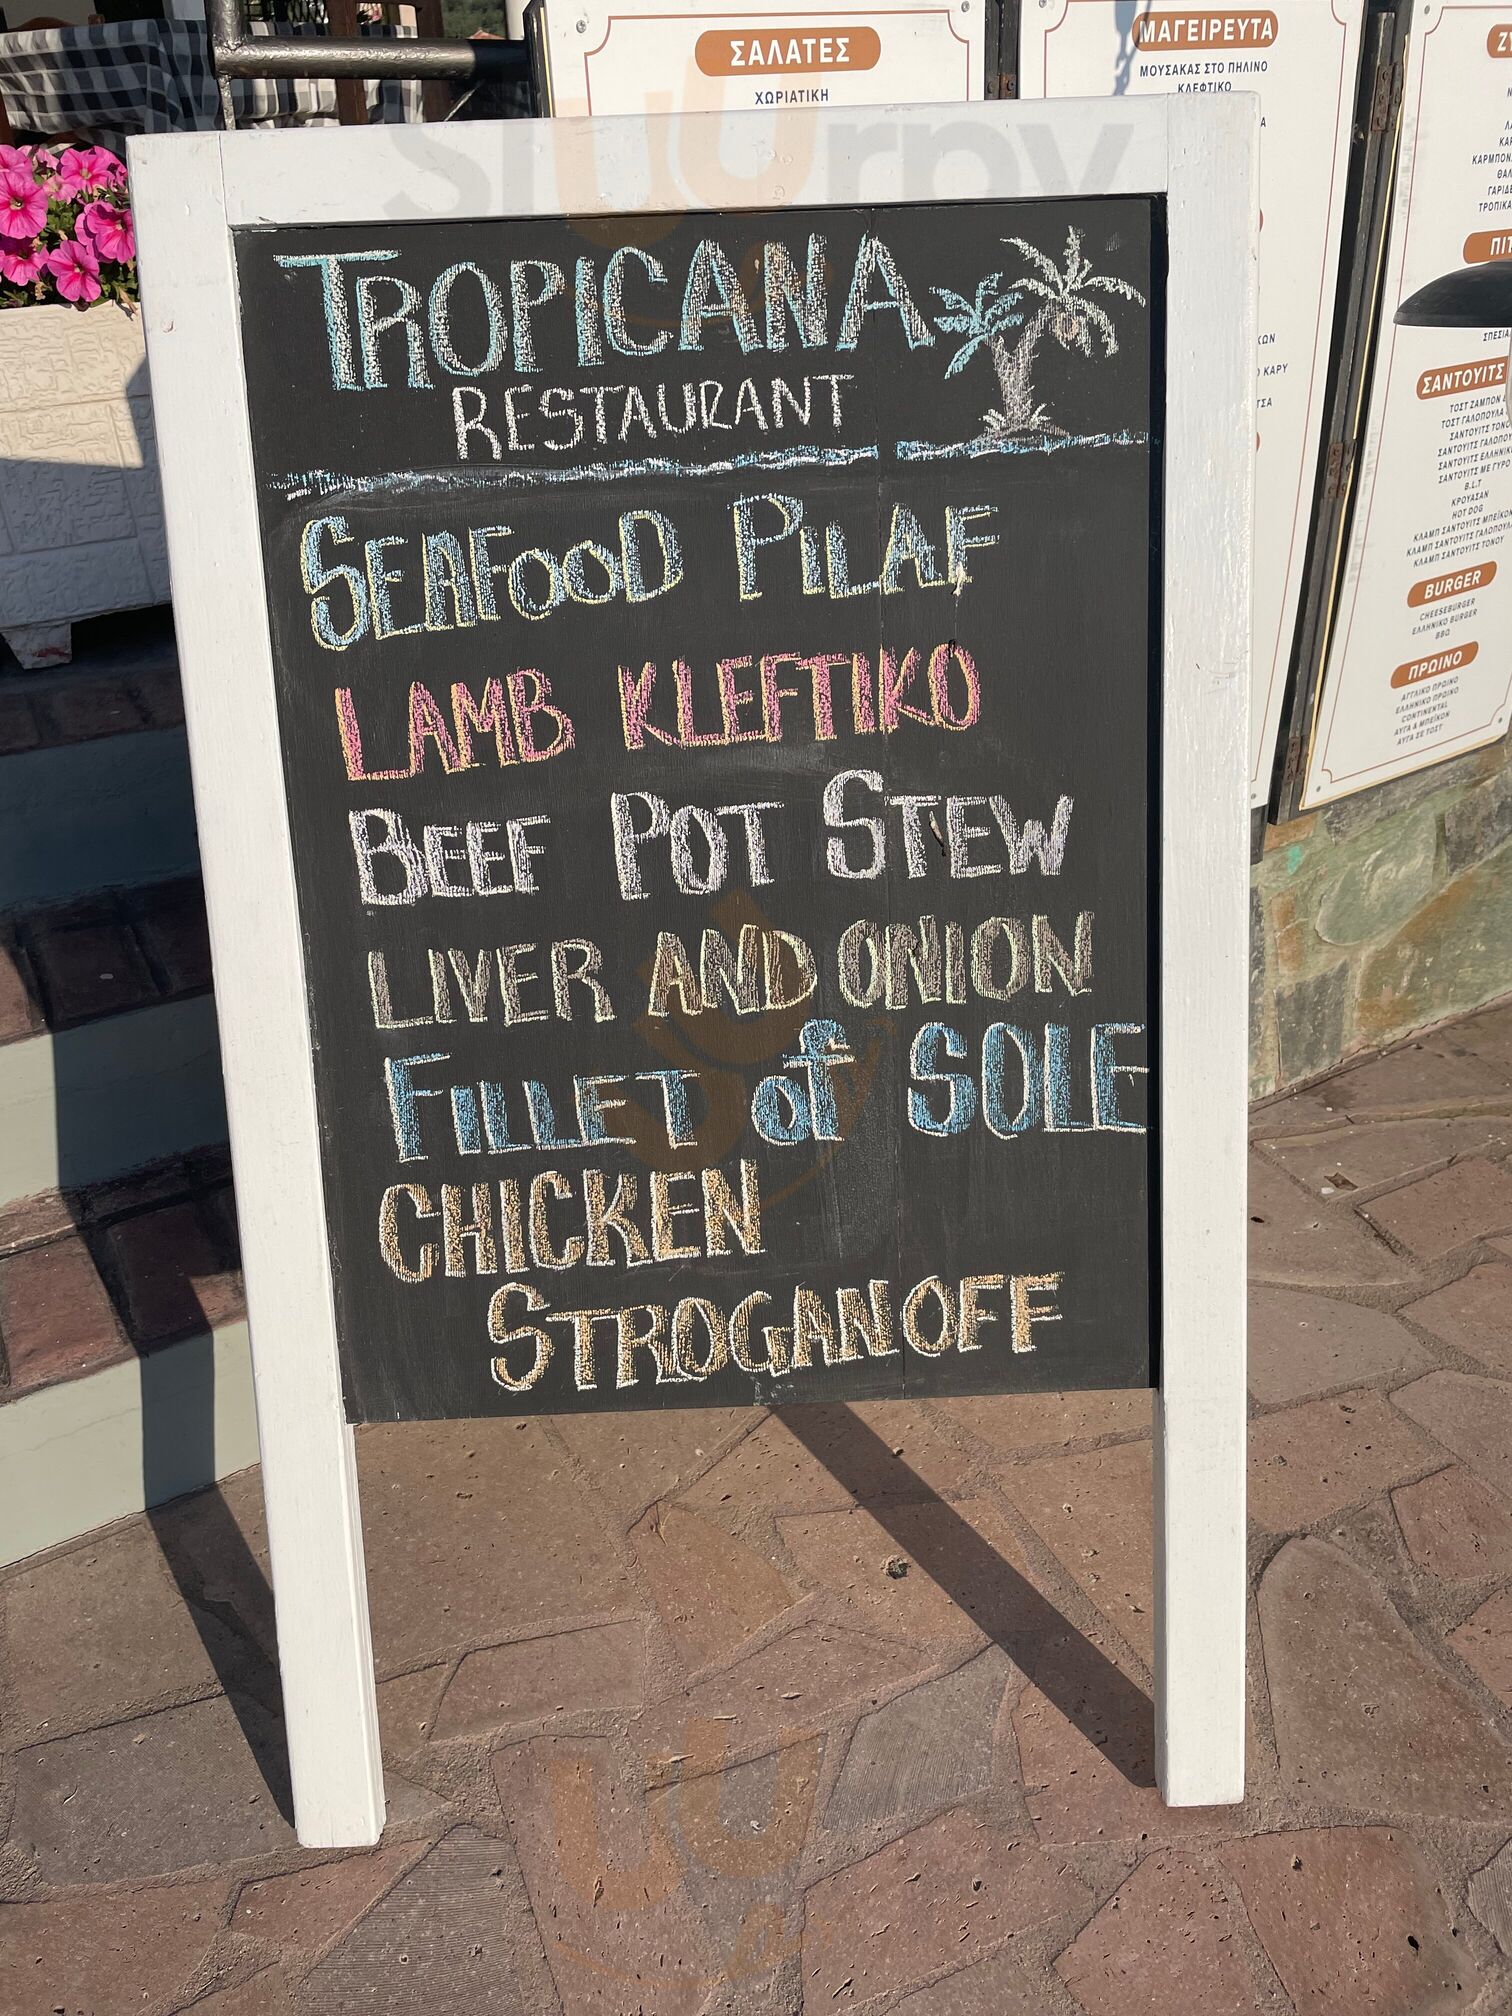 TROPICANA
RESTAURANT
SEAFOOD PILAF
LAMB KLEFTIKO
BEEF POT STEW
LIVER AND ONION
FILLET of SOLE
CHICKEN
STROGANOFF
ΣΑΛΑΤΕΣ
ΧΩΡΙΑΤΙΚΗ
ΜΑΓΕΙΡΕΥΤΑ
ΜΟΥΣΑΚΑΣ ΣΤΟ ΠΗΛΙΝΟ
ΚΛΕΦΤΙΚΟ
ΣΑΝΤΟΥΙΤΣ
ΣΑΝΤΟΥΙΤΣ ΜΕ ΓΥΡΟ
B.L.T
ΚΡΟΥΑΣΑΝ
HOT DOG
ΚΛΑΜΠ ΣΑΝΤΟΥΙΤΣ ΜΠΕΪΚΟΝ
ΚΛΑΜΠ ΣΑΝΤΟΥΙΤΣ ΓΑΛΟΠΟΥΛΑ
ΚΛΑΜΠ ΣΑΝΤΟΥΙΤΣ ΤΟΝΟΥ
BURGER
CHEESEBURGER
ΕΛΛΗΝΙΚΟ BURGER
BBQ
ΠΡΩΙΝΟ
ΑΓΓΛΙΚΟ ΠΡΩΙΝΟ
ΕΛΛΗΝΙΚΟ ΠΡΩΙΝΟ
CONTINENTAL
ΑΥΓΑ & ΜΠΕΪΚΟΝ
ΑΥΓΑ ΣΕ ΤΟΣΤ